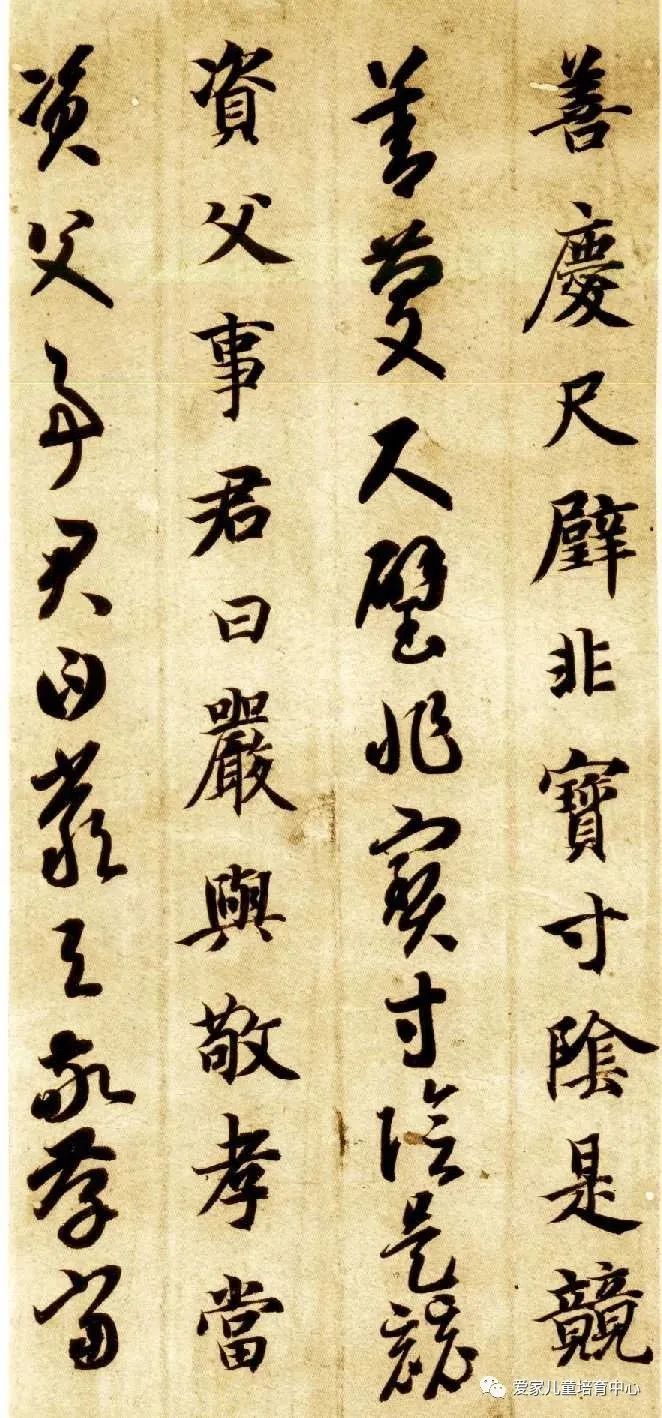 善慶尺璧非寶寸陰是競
善慶尺璧非寶寸陰是競
資父事君曰嚴與敬孝當
資父事君曰嚴與敬孝當
爱家儿童培育中心